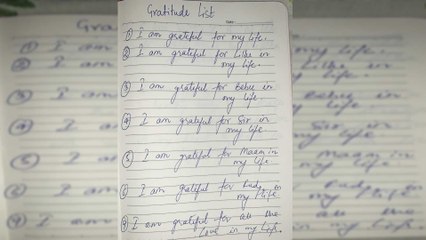 Gratitude List
DATE:
① I am grateful for my life.
② I am grateful for Like in
my life.
③ I am grateful for Bebu in
my life
④ I am grateful for Sir in
my life
⑤ I am grateful for Maam in
my life.
⑥ I am grateful for in
my life.
⑦ I am grateful for all the
love in my life.